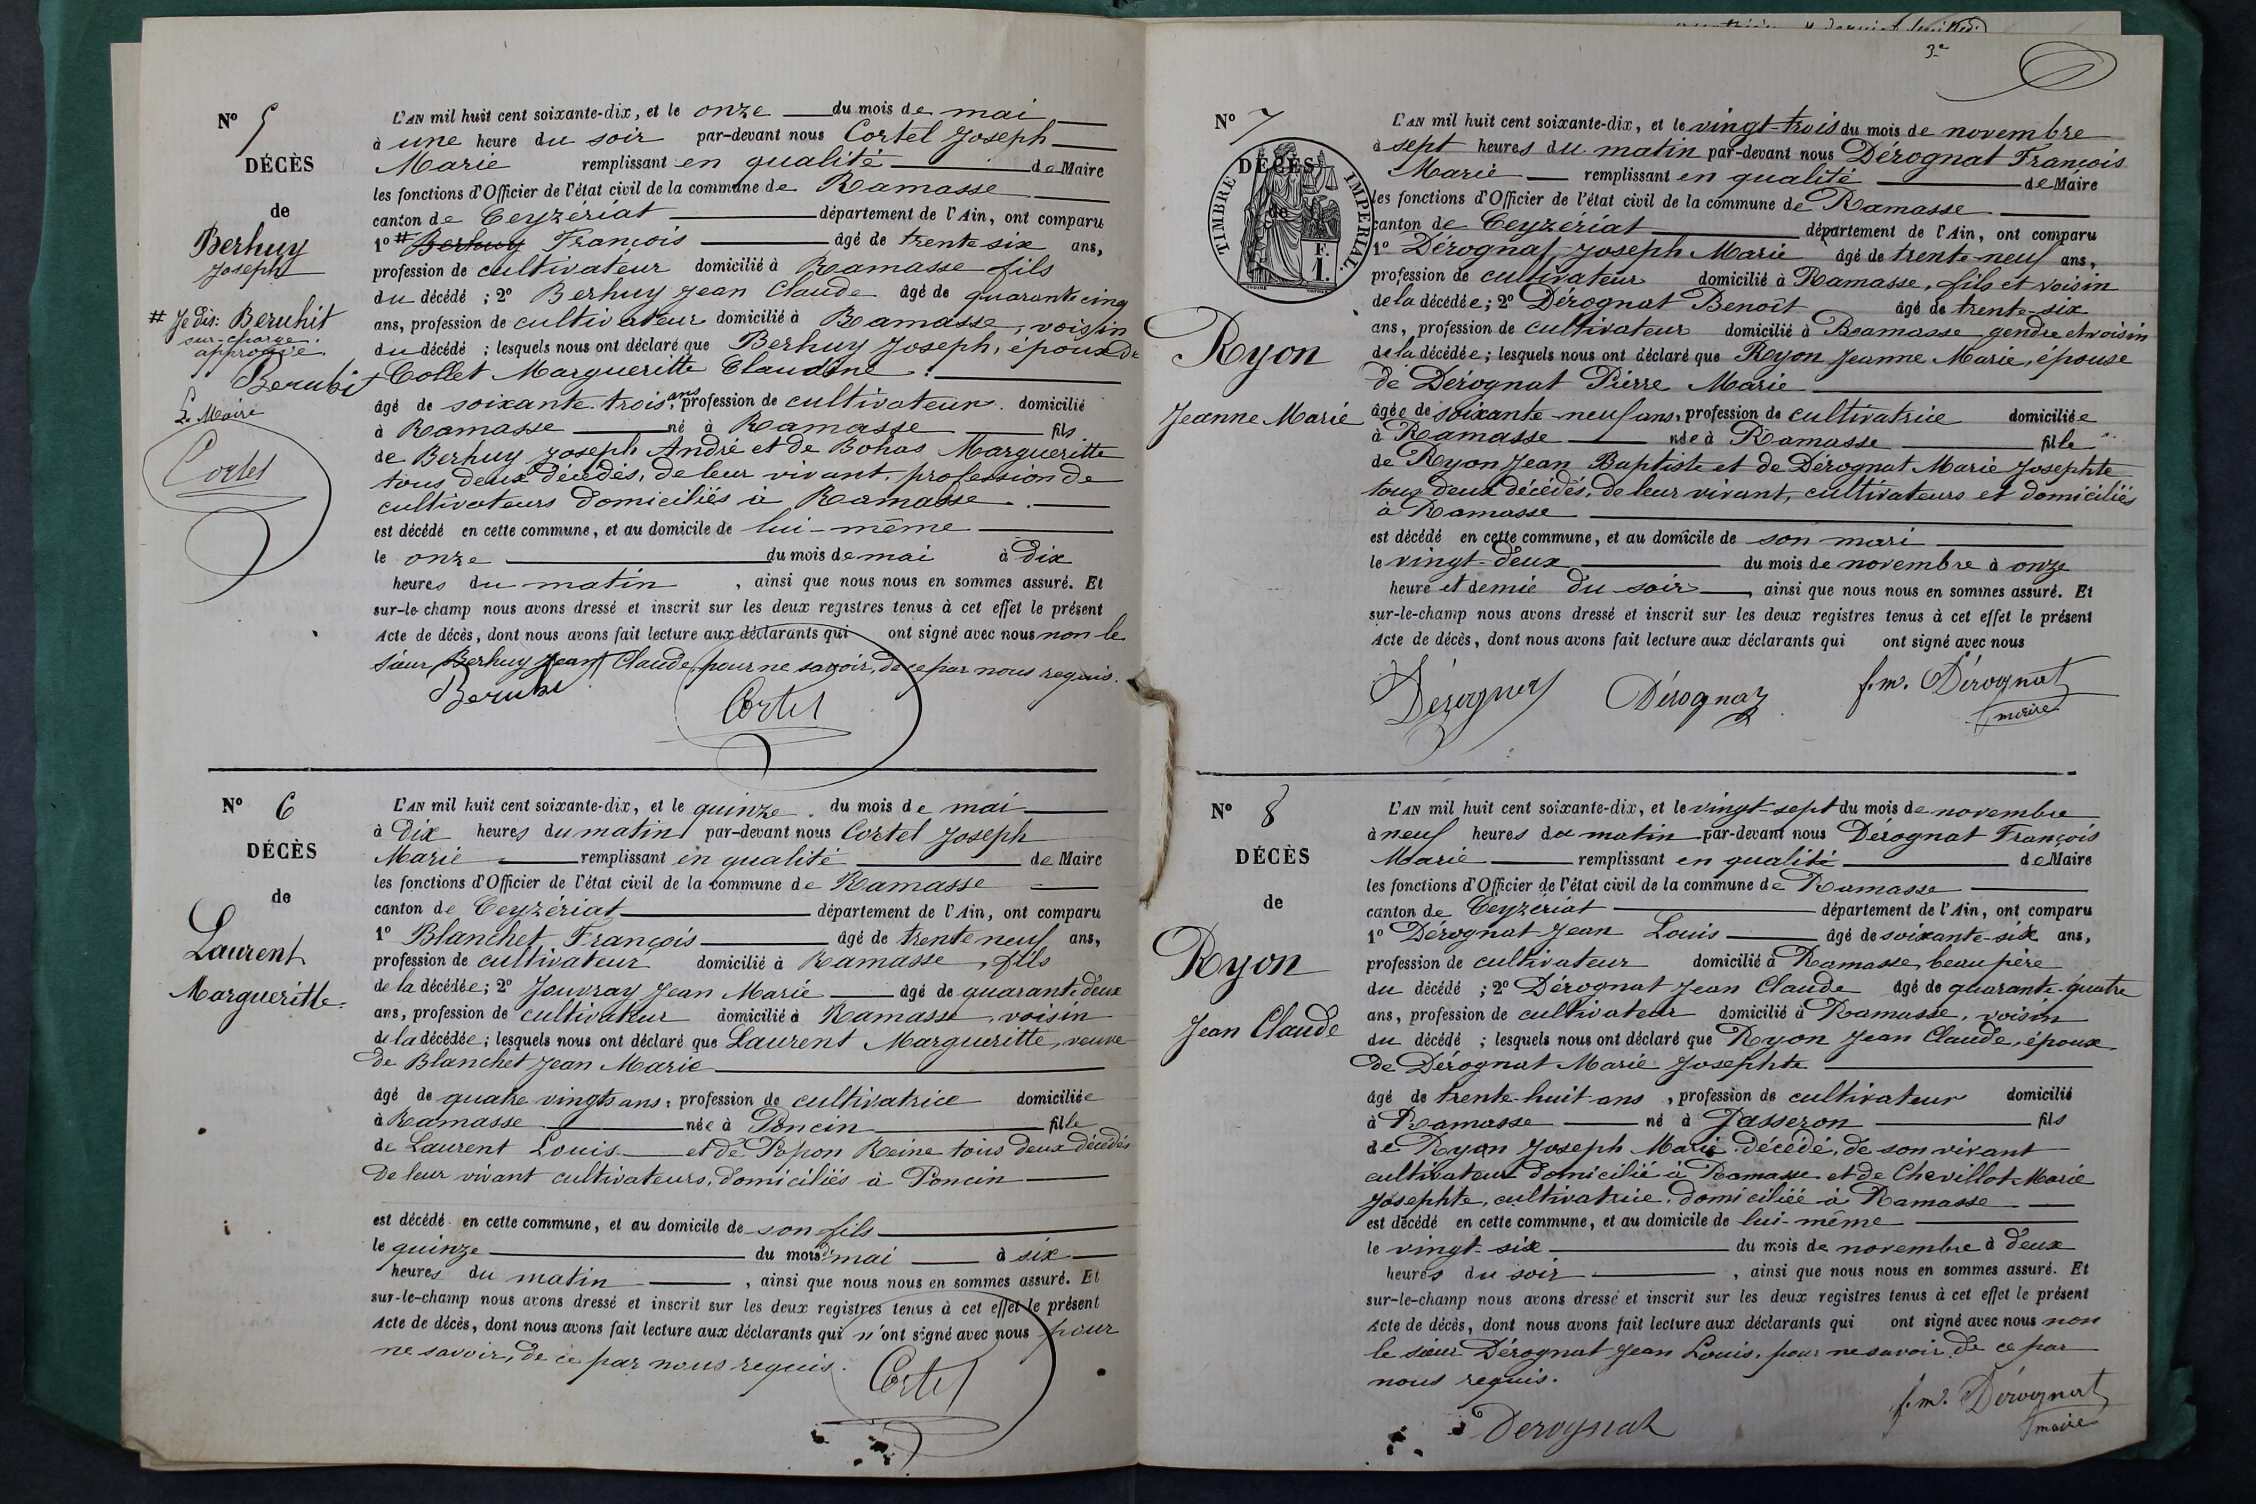 N° 5
DÉCÈS
de
Berhuy
Joseph
# Je dis: Beruhit
sur-charge
approuvée.
Berubit
Le Maire
Cortel
L'AN mil huit cent soixante-dix, et le onze du mois de mai
à une heure du soir par-devant nous Cortel Joseph
Marie remplissant en qualité de Maire
les fonctions d'Officier de l'état civil de la commune de Ramasse
canton de Ceyzériat département de l'Ain, ont comparu
1° # Berhuy François âgé de trente six ans,
profession de cultivateur domicilié à Ramasse fils
du décédé ; 2° Berhuy Jean Claude âgé de quarante cinq
ans, profession de cultivateur domicilié à Ramasse, voisin
du décédé ; lesquels nous ont déclaré que Berhuy Joseph, époux de
Collet Margueritte Claudine
âgé de soixante-trois ans, profession de cultivateur domicilié
à Ramasse né à Ramasse fils
de Berhuy Joseph André et de Bohas Margueritte
tous deux décédés, de leur vivant, profession de
cultivateurs domiciliés à Ramasse.
est décédé en cette commune, et au domicile de lui-même
le onze du mois de mai à dix
heures du matin, ainsi que nous nous en sommes assuré. Et
sur-le-champ nous avons dressé et inscrit sur les deux registres tenus à cet effet le présent
Acte de décès, dont nous avons fait lecture aux déclarants qui ont signé avec nous non le
sieur Berhuy Jean Claude, pour ne savoir, de ce par nous requis.
Berubit
Cortel
N° 6
DÉCÈS
de
Laurent
Margueritte.
L'AN mil huit cent soixante-dix, et le quinze du mois de mai
à dix heures du matin par-devant nous Cortel Joseph
Marie remplissant en qualité de Maire
les fonctions d'Officier de l'état civil de la commune de Ramasse
canton de Ceyzériat département de l'Ain, ont comparu
1° Blanchet François âgé de trente neuf ans,
profession de cultivateur domicilié à Ramasse, fils
de la décédée; 2° Jouvray Jean Marie âgé de quarante deux
ans, profession de cultivateur domicilié à Ramasse, voisin
de la décédée; lesquels nous ont déclaré que Laurent Margueritte, veuve
de Blanchet Jean Marie
âgé de quatre vingts ans, profession de cultivatrice domiciliée
à Ramasse née à Poncin fille
de Laurent Louis et de Pépon Reine tous deux décédés
de leur vivant cultivateurs, domiciliés à Poncin
est décédé en cette commune, et au domicile de son fils
le quinze du mois de mai à six
heures du matin, ainsi que nous nous en sommes assuré. Et
sur-le-champ nous avons dressé et inscrit sur les deux registres tenus à cet effet le présent
Acte de décès, dont nous avons fait lecture aux déclarants qui n'ont signé avec nous pour
ne savoir, de ce par nous requis.
Cortel
3e
N° 7
DÉCÈS
de
TIMBRE IMPÉRIAL.
F. 1.
Ryon
Jeanne Marie
L'AN mil huit cent soixante-dix, et le vingt-trois du mois de novembre
à sept heures du matin par-devant nous Dérognat François
Marie remplissant en qualité de Maire
les fonctions d'Officier de l'état civil de la commune de Ramasse
canton de Ceyzériat département de l'Ain, ont comparu
1° Dérognat Joseph Marie âgé de trente-neuf ans,
profession de cultivateur domicilié à Ramasse, fils et voisin
de la décédée; 2° Dérognat Benoît âgé de trente-six
ans, profession de cultivateur domicilié à Ramasse gendre et voisin
de la décédée; lesquels nous ont déclaré que Ryon Jeanne Marie, épouse
de Dérognat Pierre Marie
âgée de soixante-neuf ans, profession de cultivatrice domiciliée
à Ramasse née à Ramasse fille
de Ryon Jean Baptiste et de Dérognat Marie Josephte
tous deux décédés, de leur vivant, cultivateurs et domiciliés
à Ramasse
est décédé en cette commune, et au domicile de son mari
le vingt-deux du mois de novembre à onze
heure et demie du soir, ainsi que nous nous en sommes assuré. Et
sur-le-champ nous avons dressé et inscrit sur les deux registres tenus à cet effet le présent
Acte de décès, dont nous avons fait lecture aux déclarants qui ont signé avec nous
Dérognat Dérognat f.m. Dérognat
maire
N° 8
DÉCÈS
de
Ryon
Jean Claude
L'AN mil huit cent soixante-dix, et le vingt-sept du mois de novembre
à neuf heures du matin par-devant nous Dérognat François
Marie remplissant en qualité de Maire
les fonctions d'Officier de l'état civil de la commune de Ramasse
canton de Ceyzériat département de l'Ain, ont comparu
1° Dérognat Jean Louis âgé de soixante-six ans,
profession de cultivateur domicilié à Ramasse, beau père
du décédé ; 2° Dérognat Jean Claude âgé de quarante-quatre
ans, profession de cultivateur domicilié à Ramasse, voisin
du décédé ; lesquels nous ont déclaré que Ryon Jean Claude, époux
de Dérognat Marie Josephte
âgé de trente-huit ans, profession de cultivateur domicilié
à Ramasse né à Jasseron fils
de Ryon Joseph Marie décédé, de son vivant
cultivateur domicilié à Ramasse et de Chevillot Marie
Josephte, cultivatrice, domiciliée à Ramasse
est décédé en cette commune, et au domicile de lui-même
le vingt-six du mois de novembre à deux
heures du soir, ainsi que nous nous en sommes assuré. Et
sur-le-champ nous avons dressé et inscrit sur les deux registres tenus à cet effet le présent
Acte de décès, dont nous avons fait lecture aux déclarants qui ont signé avec nous non
le sieur Dérognat Jean Louis, pour ne savoir, de ce par
nous requis.
Derognat
f.m. Dérognat
maire